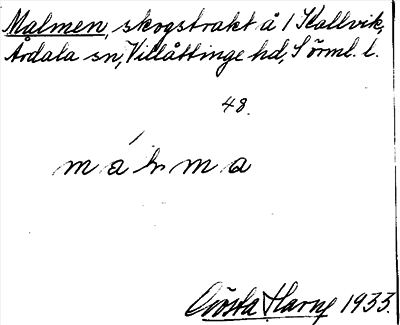 Malmen, skogstrakt å 1 Kallvik,
Årdala sn, Villåttinge hd, Sörml. l.
48.
Gösta Harne 1933.